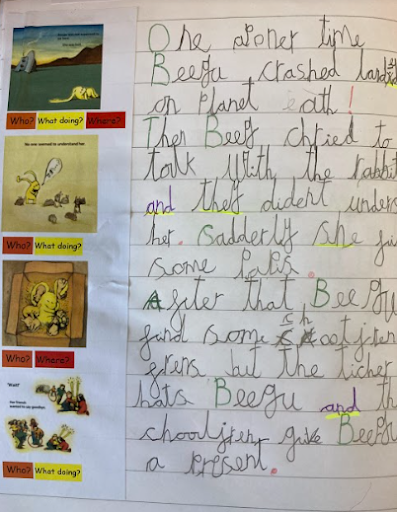 Who? What doing? Where?
No one seemed to understand her.
Who? What doing?
Who? Where?
"WAIT!"
Who? What doing?
One aponer time
Beegu crashed landid
on Planet eath!
Then Beeg chried to
talk With the rabbit
and they dident unders
her. Sadderly she
some
After that Beegu
fund some
frens but the ticher
hats Beegu and th
chooljren give Beegu
a present.